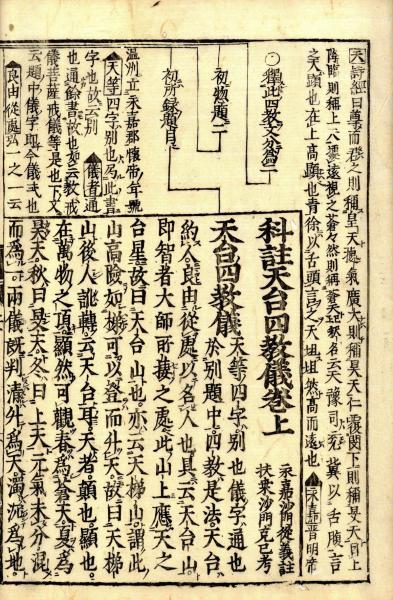 天詩經曰尊而君之則稱皇天德氣廣大則稱昊天仁覆閔下則稱旻天自上
降臨則稱上天據遠視之蒼々然則稱蒼天
之天顯也在上高顯也青徐以舌頭言之天坦坦然高而遠也
永嘉晋明帝
温州立永嘉郡懷帝年號
天等四字別也爲此書
字也故云別
儀者通
也通餘書故也如云教戒
儀菩薩戒儀等是也下文
云題中儀字即今儀式也
良由從處弘一之一云
獨此四教文分篇二
初物題二
初所錄題目
科註天台四教儀卷上
永嘉沙門從義註
扶桑沙門克己考
天台四教儀
天等四字別也儀字通也
於別題中四教是法天台
約人良由從處以名人也具云天台山
即智者大師所棲之處此山上應天之
台星故曰天台山也亦云天梯山謂此
山高險如梯可以登而升天故曰天梯
山後人訛轉云天台耳天者顛也顯也
在萬物之頂顯然可觀春爲蒼天夏爲
昊天秋曰旻天冬曰上天元氣未分混
而爲一兩儀既判清升爲天濁沉爲地